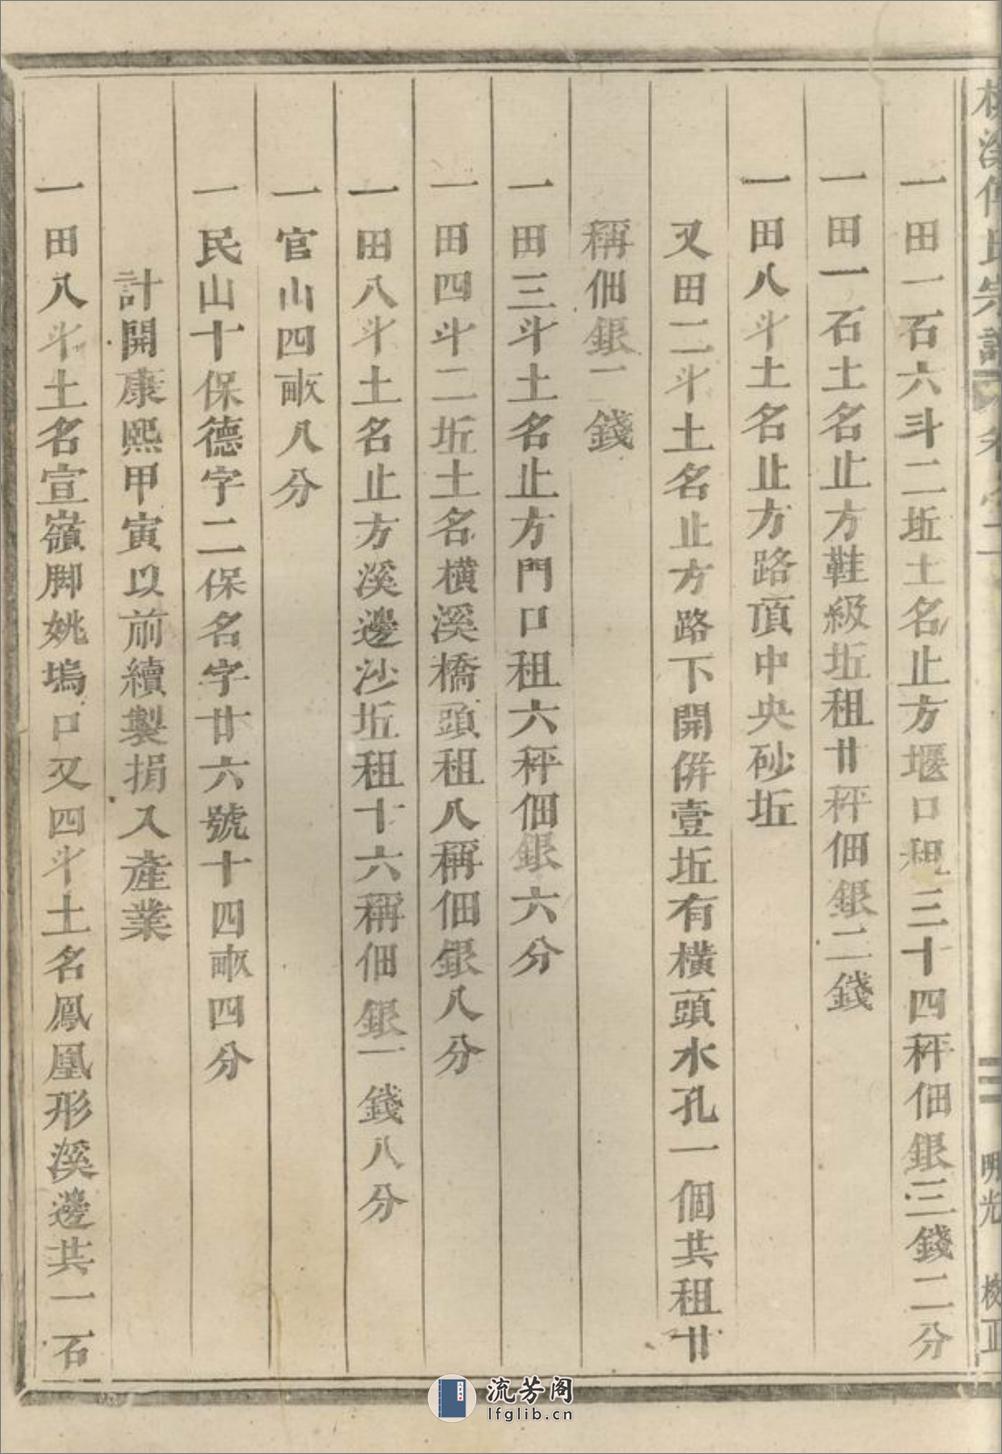 溪傅氏宗譜 卷之二 三 明光 校正
一田一石六斗二坵土名止方堰口租三十四秤佃銀三錢二分
一田一石土名止方鞋級坵租廿秤佃銀二錢
一田八斗土名止方路頂中央砂坵
又田二斗土名止方路下開併壹坵有橫頭水孔一個共租廿
稱佃銀二錢
一田三斗土名止方門口租六秤佃銀六分
一田四斗二坵土名橫溪橋頭租八稱佃銀八分
一田八斗土名止方溪邊沙坵租十六稱佃銀一錢八分
一官山四畝八分
一民山十保德字二保名字廿六號十四畝四分
計開康熙甲寅以前續製捐入產業
一田八斗土名宣嶺脚姚塢口又四斗土名鳳凰形溪邊共一石
流芳阁
lfglib.cn